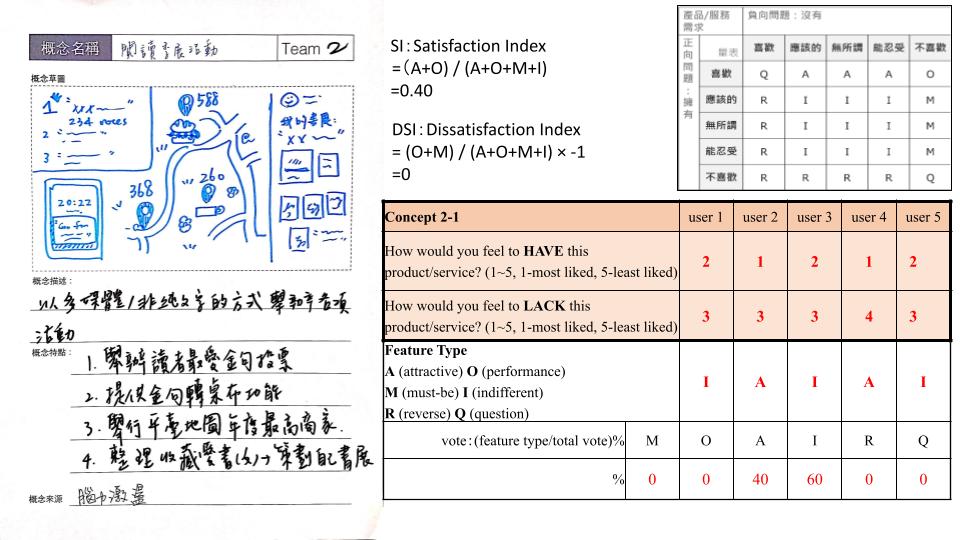 概念名稱 閱讀書展活動 Team 2
概念草圖
1 "xxx
234 votes
2
3
588
368
260
@
我的書展:
"xx
20:22
概念描述:
以多媒體/非純文字的方式舉辦年各項
活動
概念特點:
1. 舉辦讀者最愛金句投票
2. 提供金句轉桌布功能
3. 舉行平臺地圖年度最高商家.
4. 整理收藏愛書(文)→策劃自己書展
概念來源 腦力激盪
SI：Satisfaction Index
=（A+O) / (A+O+M+I)
=0.40
DSI：Dissatisfaction Index
= (O+M) / (A+O+M+I) × -1
=0
產品/服務需求 負向問題：沒有
正向問題：擁有 量表 喜歡 應該的 無所謂 能忍受 不喜歡
喜歡 Q A A A O
應該的 R I I I M
無所謂 R I I I M
能忍受 R I I I M
不喜歡 R R R R Q
Concept 2-1 user 1 user 2 user 3 user 4 user 5
How would you feel to HAVE this
product/service? (1~5, 1-most liked, 5-least liked) 2 1 2 1 2
How would you feel to LACK this
product/service? (1~5, 1-most liked, 5-least liked) 3 3 3 4 3
Feature Type
A (attractive) O (performance)
M (must-be) I (indifferent)
R (reverse) Q (question)
I A I A I
vote：(feature type/total vote)% M O A I R Q
% 0 0 40 60 0 0